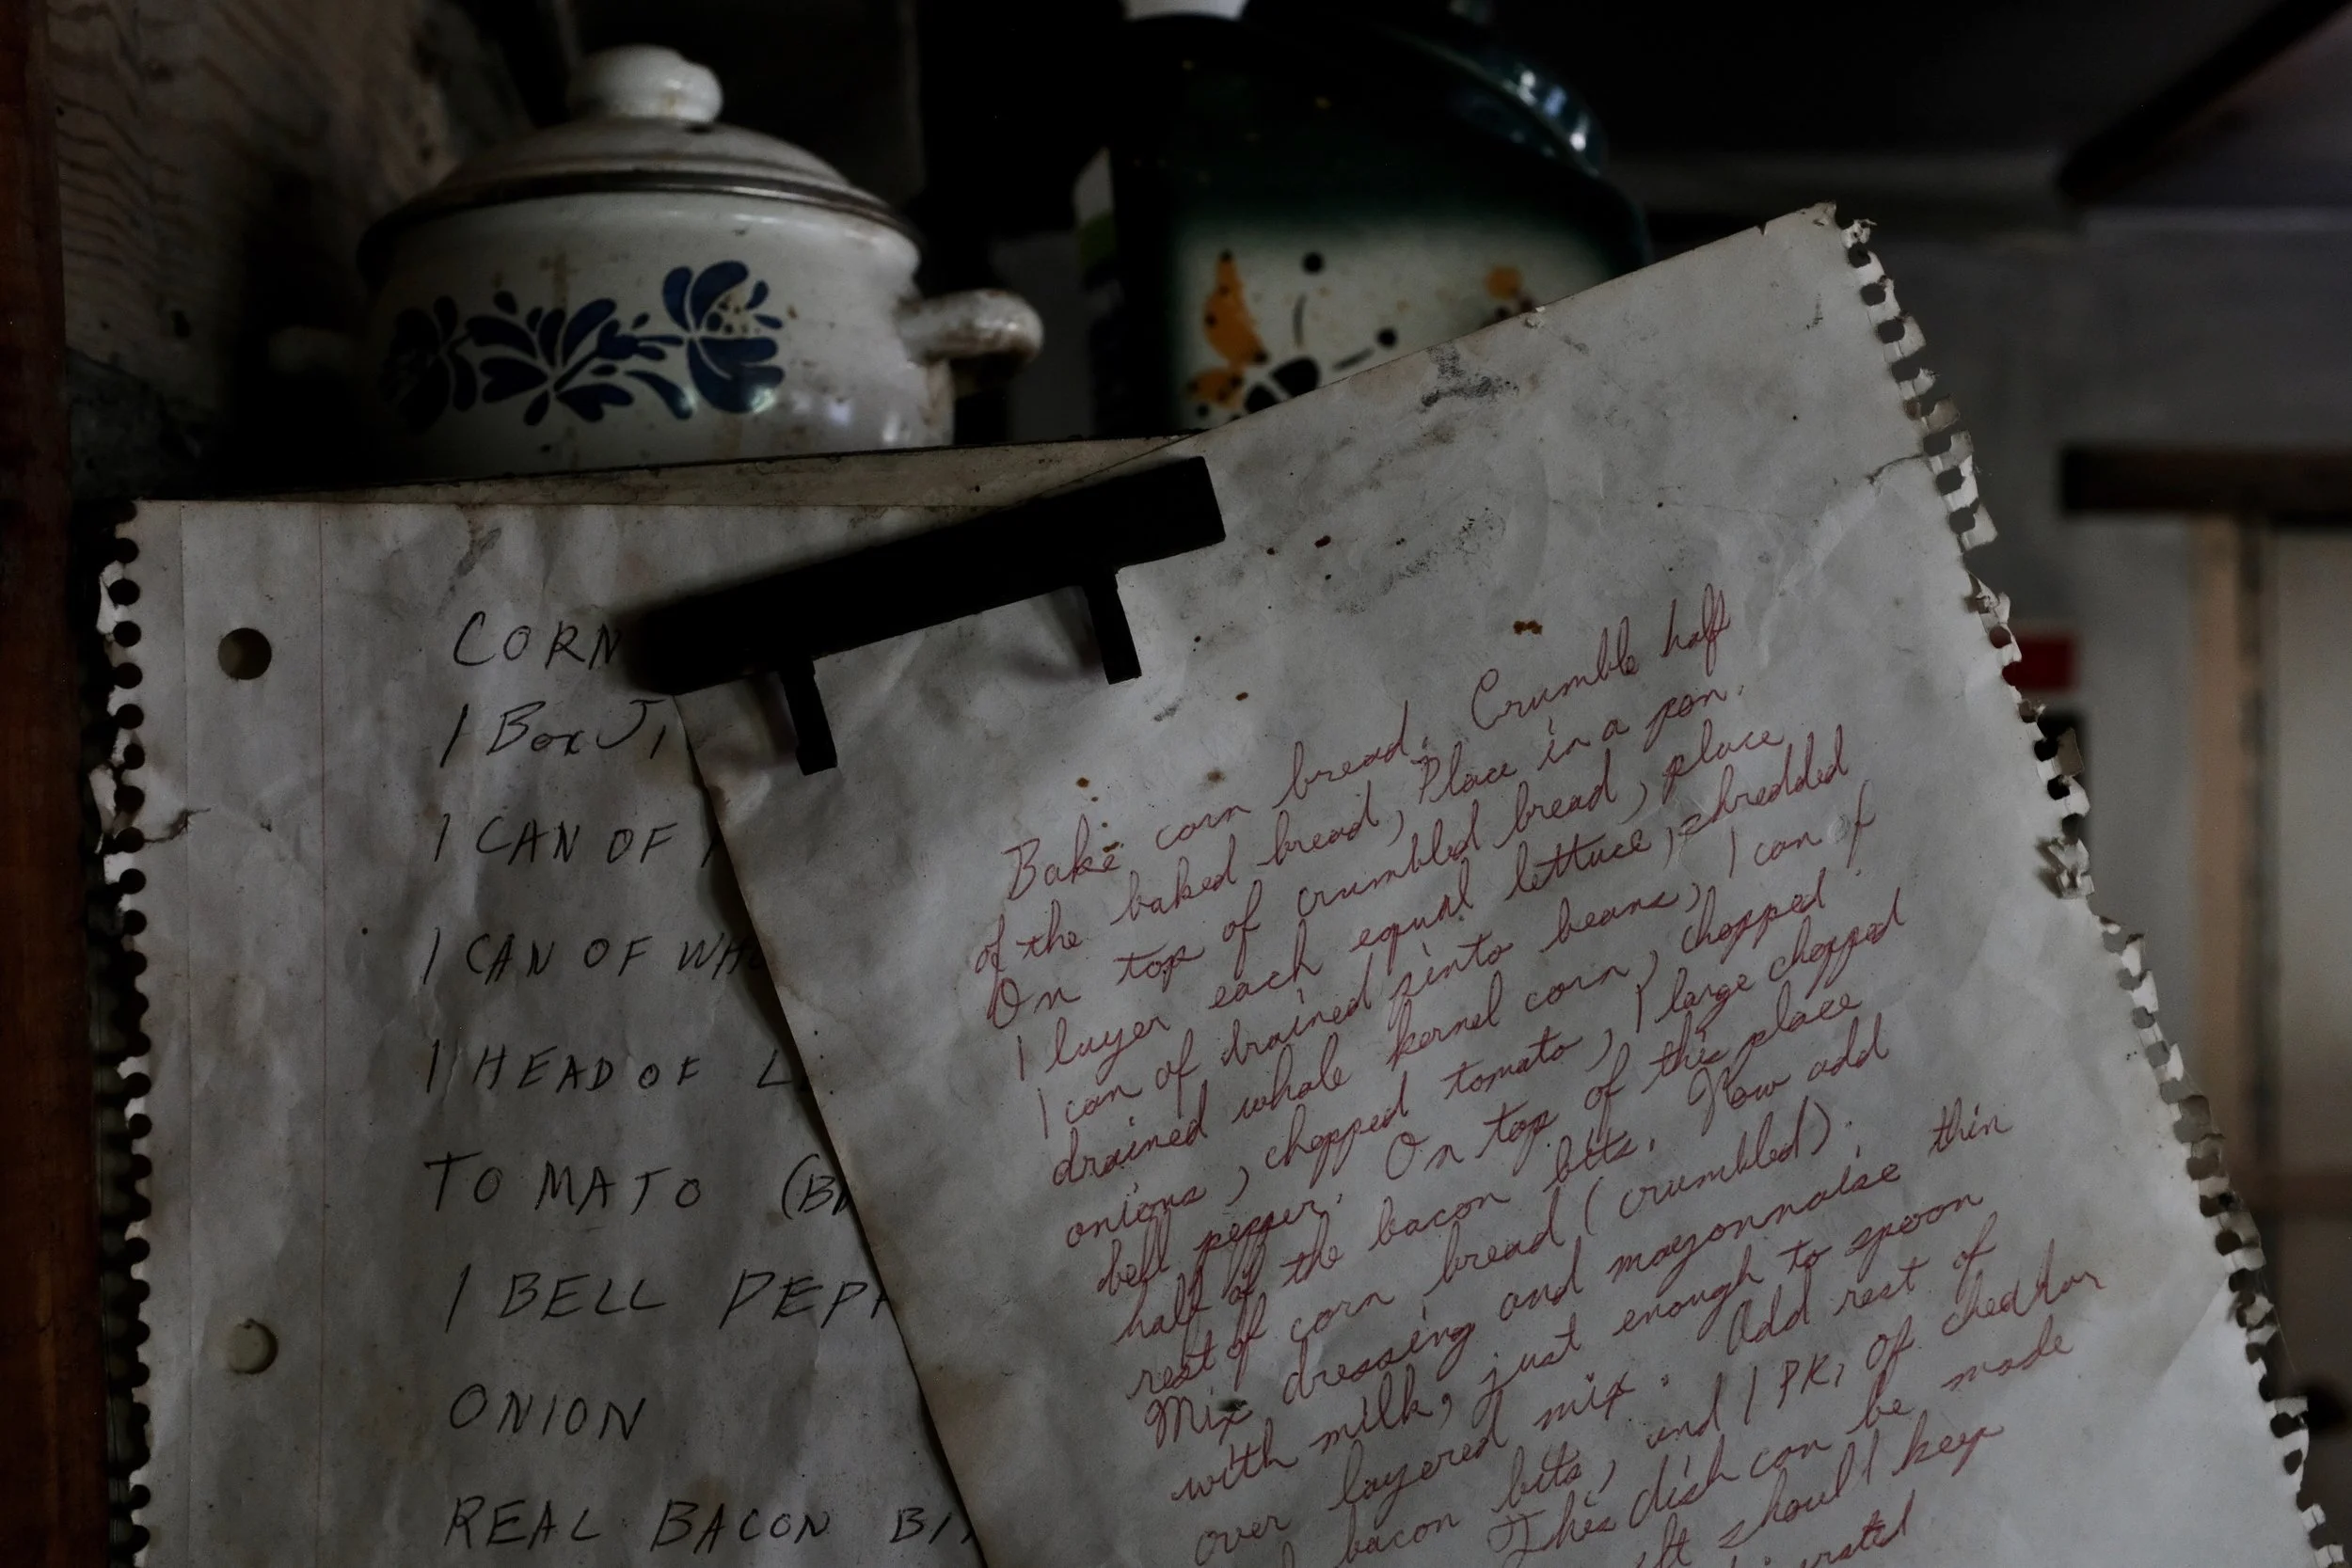 CORN
1 Box Ji
1 CAN OF
1 CAN OF WH
1 HEAD OF L
TO MATO (B
1 BELL PEPP
ONION
REAL BACON BI
Bake corn bread. Crumble half
of the baked bread, Place in a pan.
On top of crumbled bread, place
1 layer each equal lettuce, shredded
1 can of drained pinto beans, 1 can of
drained whole kernel corn, chopped
onions, chopped tomato, 1 large chopped
bell pepper. On top of this place
half of the bacon bits. Now add
rest of corn bread (crumbled).
Mix dressing and mayonnaise thin
with milk, just enough to spoon
over layered mix. Add rest of
bacon bits, and 1 PK, of chedhar
This dish can be made
should keep